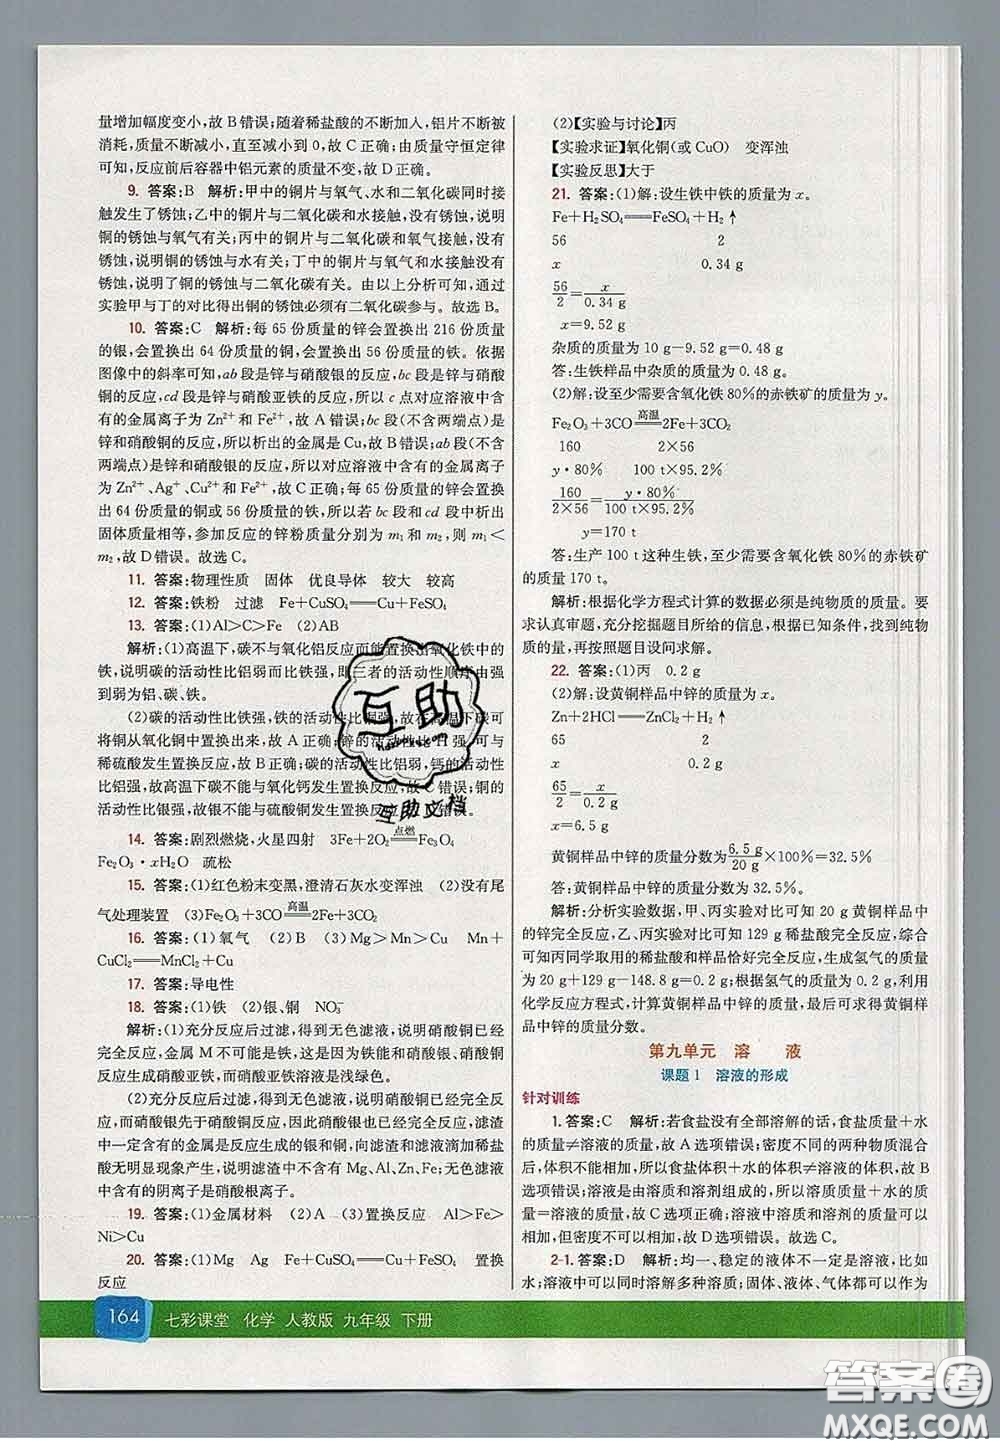 量增加幅度变小,故 B 错误;随着稀盐酸的不断加入,铝片不断被
消耗,质量不断减小,直至减小到 0,故 C 正确;由质量守恒定律
可知,反应前后容器中铝元素的质量不变,故 D 正确。
9. 答案:B 解析:甲中的铜片与氧气、水和二氧化碳同时接
触发生了锈蚀;乙中的铜片与二氧化碳和水接触,没有锈蚀,说明
铜的锈蚀与氧气有关;丙中的铜片与二氧化碳和氧气接触,没有
锈蚀,说明铜的锈蚀与水有关;丁中的铜片与水和氧气接触,没有
锈蚀,说明了铜的锈蚀与二氧化碳有关。由以上分析可知,通过
实验甲与丁的对比得出铜的锈蚀必须有二氧化碳参与。故选 B。
10. 答案:C 解析:每 65 份质量的锌会置换出 216 份质量
的银,会置换出 64 份质量的铜,会置换出 56 份质量的铁。依据
图像中的斜率可知,ab 段是锌与硝酸银的反应,bc 段是锌与硝酸
铜的反应,cd 段是锌与硝酸亚铁的反应,所以 c 点对应溶液中含
有的金属离子为 Zn²⁺ 和 Fe²⁺,故 A 错误;bc 段(不含两端点)是
锌和硝酸铜的反应,所以析出的金属是 Cu,故 B 错误;ab 段(不含
两端点)是锌和硝酸银的反应,所以对应溶液中含有的金属离子
为 Zn²⁺、Ag⁺、Cu²⁺ 和 Fe²⁺,故 C 正确;每 65 份质量的锌会置换
出 64 份质量的铜或 56 份质量的铁,所以若 bc 段和 cd 段中析出
固体质量相等,参加反应的锌粉质量分别为 m₁ 和 m₂,则 m₁<
m₂,故 D 错误。故选 C。
11. 答案:物理性质 固体 优良导体 较大 较高
12. 答案:铁粉 过滤 Fe+CuSO₄══Cu+FeSO₄
13. 答案:(1)Al>C>Fe (2)AB
解析:(1)高温下,碳不与氧化铝反应而能置换出氧化铁中的
铁,说明碳的活动性比铝弱而比铁强,即三者的活动性顺序由强
到弱为铝、碳、铁。
(2)碳的活动性比铁强,铁的活动性比铜强,故在高温下碳可
将铜从氧化铜中置换出来,故 A 正确;锌的活动性比 H 强,可与
稀硫酸发生置换反应,故 B 正确;碳的活动性比铝弱,钙的活动性
比铝强,故高温下碳不能与氧化钙发生置换反应,故 C 错误;铜的
活动性比银强,故银不能与硫酸铜发生置换反应,故 D 错误。
14. 答案:剧烈燃烧,火星四射 3Fe+2O₂═点燃═Fe₃O₄
Fe₂O₃·xH₂O 疏松
15. 答案:(1)红色粉末变黑,澄清石灰水变浑浊 (2)没有尾
气处理装置 (3)Fe₂O₃+3CO═高温═2Fe+3CO₂
16. 答案:(1)氧气 (2)B (3)Mg>Mn>Cu Mn+
CuCl₂══MnCl₂+Cu
17. 答案:导电性
18. 答案:(1)铁 (2)银、铜 NO₃⁻
解析:(1)充分反应后过滤,得到无色滤液,说明硝酸铜已经
完全反应,金属 M 不可能是铁,因为铁能和硝酸银、硝酸铜发生
反应生成硝酸亚铁,而硝酸亚铁溶液是浅绿色。
(2)充分反应后过滤,得到无色滤液,说明硝酸铜已经完全反
应,而硝酸银先于硝酸铜反应,因此硝酸银也已经完全反应,滤渣
中一定含有的金属是反应生成的银和铜,向滤渣和滤液滴加稀盐
酸时无明显现象产生,说明不含有 Mg、Al、Zn、Fe;无色滤液中一
定含有的阴离子是硝酸根离子。
19. 答案:(1)金属材料 (2)A (3)置换反应 Al>Fe>
Ni>Cu
20. 答案:(1)Mg Ag Fe+CuSO₄══Cu+FeSO₄ 置换
反应
(2)【实验与讨论】丙
【实验求证】氧化铜(或 CuO) 变浑浊
【实验反思】大于
21. 答案:(1)解:设生铁中铁的质量为 x。
Fe+H₂SO₄══FeSO₄+H₂↑
56 2
x 0.34 g
56/2=x/0.34 g
x=9.52 g
杂质的质量为 10 g-9.52 g=0.48 g
答:生铁样品中杂质的质量为 0.48 g。
(2)解:设至少需要含氧化铁 80%的赤铁矿的质量为 y。
Fe₂O₃+3CO═高温═2Fe+3CO₂
160 2×56
y·80% 100 t×95.2%
160/2×56=y·80%/100 t×95.2%
y=170 t
答:生产 100 t 这种生铁,至少需要含氧化铁 80%的赤铁矿
的质量 170 t。
解析:根据化学方程式计算的数据必须是纯物质的质量。要
求认真审题,充分挖掘题目所给的信息,根据已知条件,找到纯物
质的量,再按照题目设问求解。
22. 答案:(1)丙 0.2 g
(2)解:设黄铜样品中锌的质量为 x。
Zn+2HCl══ZnCl₂+H₂↑
65 2
x 0.2 g
65/2=x/0.2 g
x=6.5 g
黄铜样品中锌的质量分数为6.5 g/20 g×100%=32.5%
答:黄铜样品中锌的质量分数为 32.5%。
解析:分析实验数据,甲、丙实验对比可知 20 g 黄铜样品中
的锌完全反应,乙、丙实验对比可知 129 g 稀盐酸完全反应,综合
可知丙同学取用的稀盐酸和样品恰好完全反应,生成氢气的质量
为 20 g+129 g-148.8 g=0.2 g;根据氢气的质量为 0.2 g,利用
化学反应方程式,计算黄铜样品中锌的质量,最后可求得黄铜样
品中锌的质量分数。
第九单元 溶 液
课题 1 溶液的形成
针对训练
1. 答案:C 解析:若食盐没有全部溶解的话,食盐质量+水
的质量≠溶液的质量,故 A 选项错误;密度不同的两种物质混合
后,体积不能相加,所以食盐体积+水的体积≠溶液的体积,故 B
选项错误;溶液是由溶质和溶剂组成的,所以溶质质量+水的质
量=溶液的质量,故 C 选项正确;溶液中溶质和溶剂的质量可以
相加,但密度不能相加,故 D 选项错误。故选 C。
2-1. 答案:D 解析:均一、稳定的液体不一定是溶液,比如
水;溶液中可以同时溶解多种溶质;固体、液体、气体都可以作为
互助
互助文档
164 七彩课堂 化学 人教版 九年级 下册
答案圈
MXQE.COM